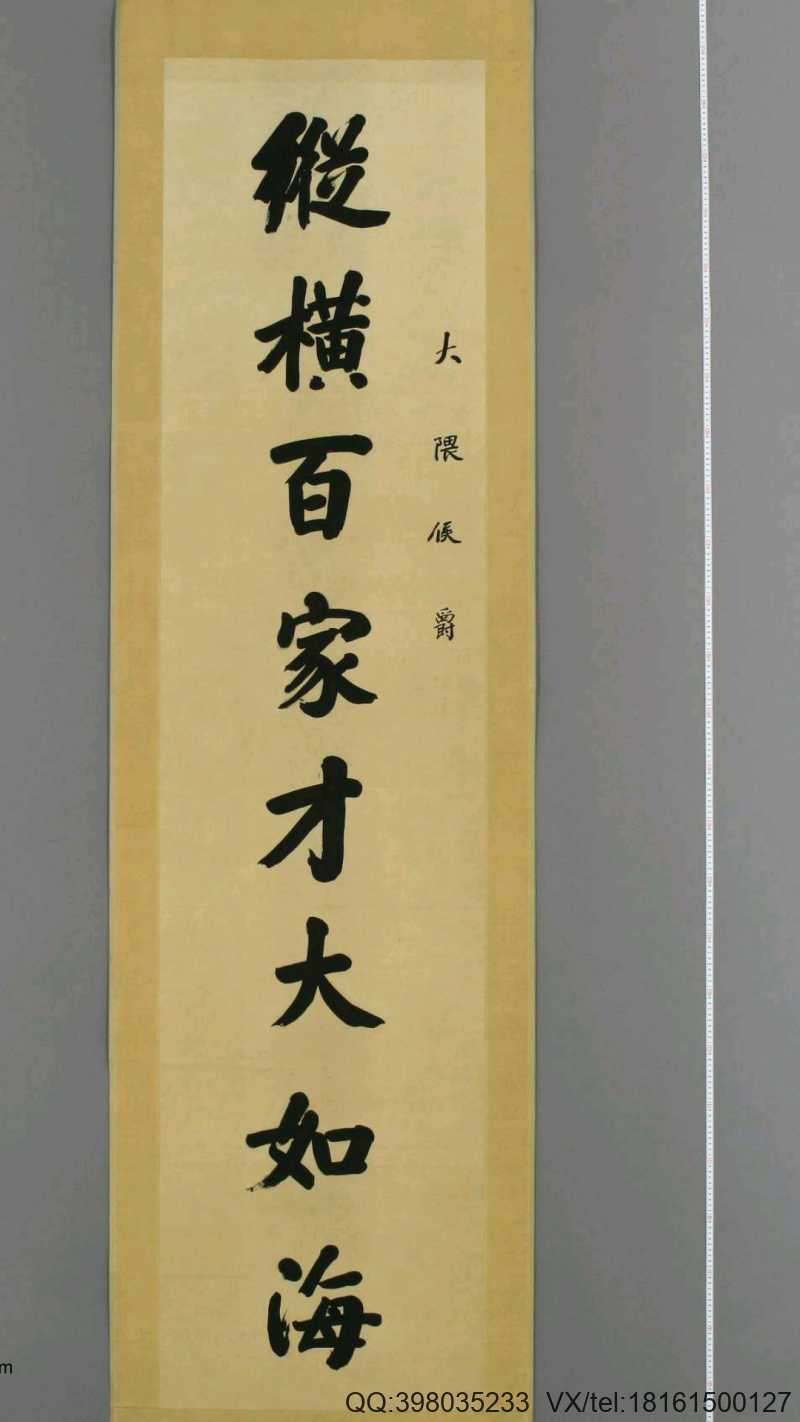 大隈侯爵
縱橫百家才大如海
m
QQ:398035233 VX/tel:18161500127